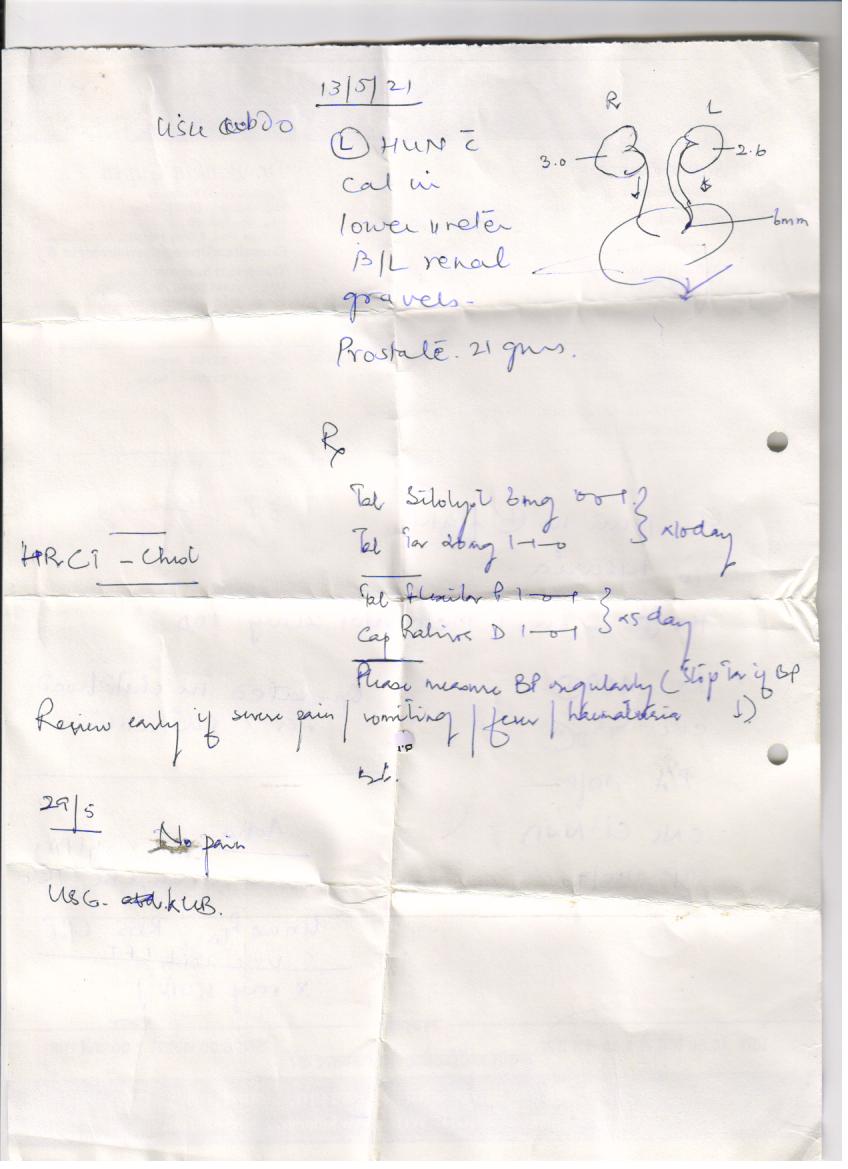 13/5/21
USG abdo
R L
Ⓛ HUN c̄
3.0 2.6
cal in
lower ureter
6mm
B/L renal
gravels.
Prostate. 21 gms.
Rx
Tab 8mg 0-0-1
x10 day
Tab Tar 20mg 1-1-0
HRCT - Chest
Tab P 1-0-1
x5 day
Cap D 1-0-1
Please measure BP regularly (Stop Tar if BP
Review early if severe pain / vomiting / fever / haematuria ↓)
29/5
No pain
USG. KUB.